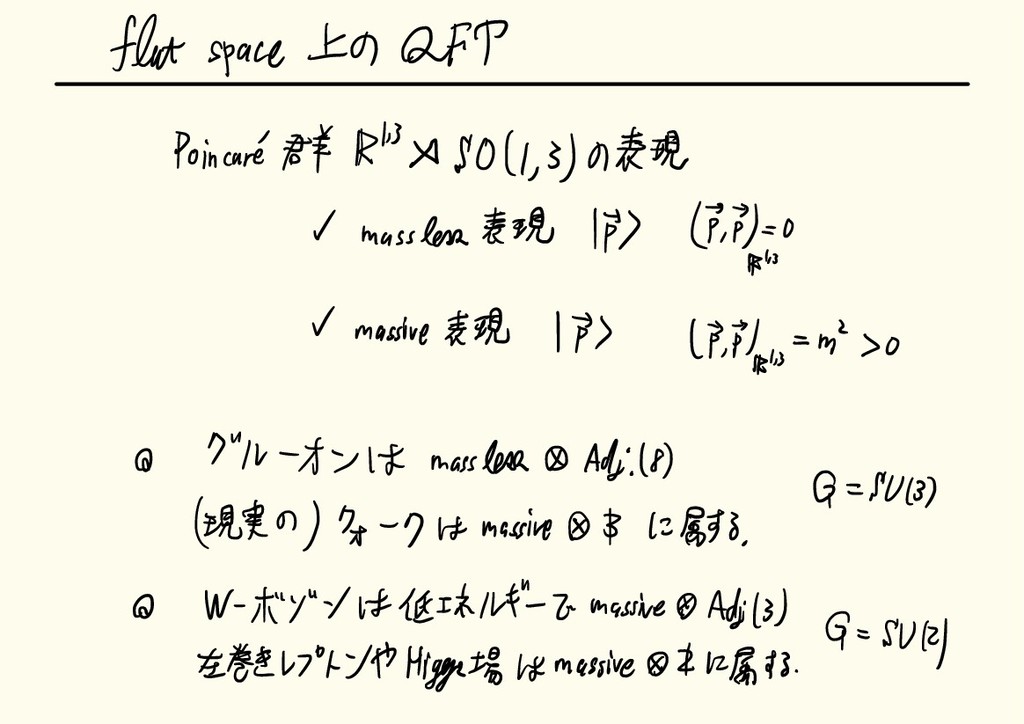 flat space 上の QFT
Poincaré 群 ℝ^{1,3} ⋊ SO(1,3) の表現
✓ massless 表現 |p⃗⟩ (p⃗,p⃗)_{ℝ^{1,3}} = 0
✓ massive 表現 |p⃗⟩ (p⃗,p⃗)_{ℝ^{1,3}} = m² > 0
グルーオンは massless ⊗ Adj.(8)
G = SU(3)
(現実の) クォークは massive ⊗ 3 に属する.
W-ボゾンは低エネルギーで massive ⊗ Adj(3)
G = SU(2)
左巻きレプトンや Higgs場は massive ⊗ 2 に属する.